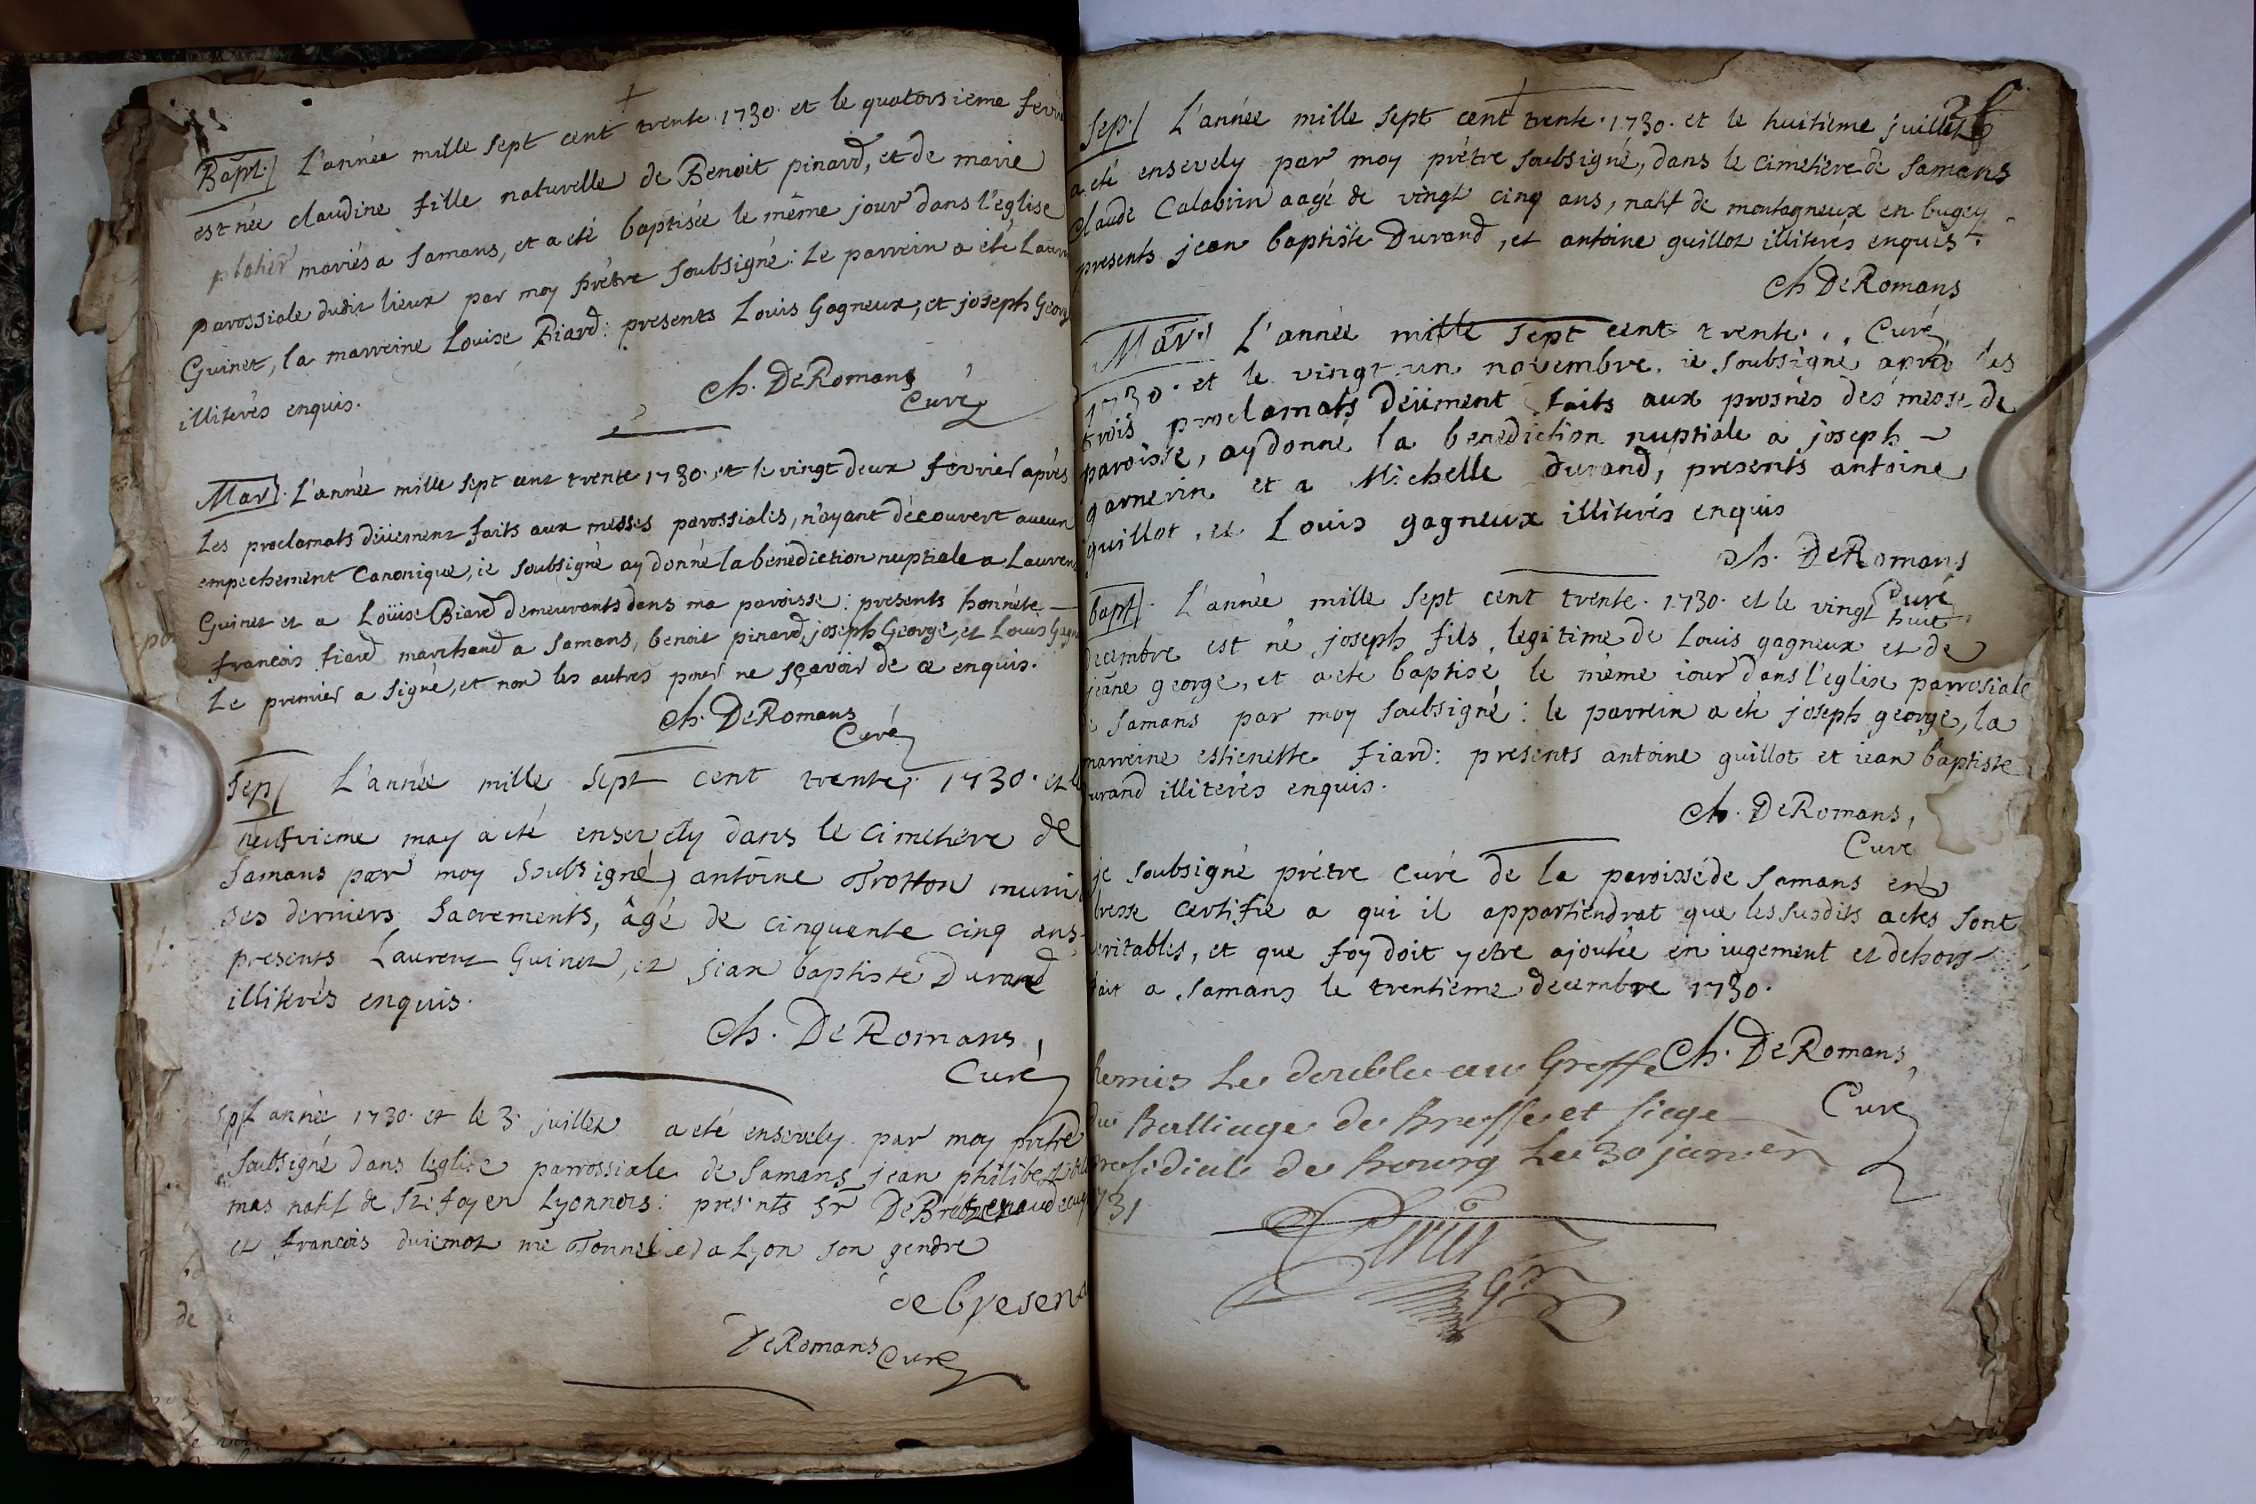 Bapt./ L'année mille sept cent trente 1730. et le quatorsieme fevri
est née claudine fille naturelle de Benoit pinard, et de marie
mariés a Samans, et a eté baptisée le même jour dans l'eglise
parossiale dudit lieux par moy prêtre soubsigné: Le parrein a eté Laurn
Guinet, la marreine Louise Biard: presents Louis Gagneux, et joseph Georg
illiterés enquis.
Ch. DeRomans
Curé
Mar/. L'année mille sept cent trente 1730. et le vingt deux fevrier après
Les proclamats deüement faits aux messes parossiales, n'ayant découvert aucun
empechement Canonique, ie soubsigné ay donné la benediction nuptiale a Lauren
Guinet et a Loüise Biard demeurants dans ma paroisse: presents honnéte
francois fiard marchand a Samans, benoit pinard, joseph George, et Louis Gagn
Le premier a signé, et non les autres pour ne sçavoir de ce enquis.
Ch. DeRomans
Curé
Sep/ L'année mille sept cent trente. 1730. et le
neufvieme may a eté ensevely dans le cimetiere de
Samans par moy soubsigné, antoine Trotton muni
ses derniers sacrements, âgé de cinquente cinq ans
presents Laurent Guinet, et jean baptiste Durand
illiterés enquis.
Ch. DeRomans,
Curé
Sp/ L'année 1730. et le 3. juillet a eté ensevely par moy pretre
soubsigné dans leglise parrossiale de Samans jean philibe
mas natif de Ste foy en Lyonnois: presents Sr
et francois duiemot me Tonnelier a Lyon son gendre
de bresena
DeRomans Curé
Sep./ L'année mille sept cent trente. 1730. et le huitieme juillet
a eté ensevely par moy prêtre soubsigné, dans le cimetiere de Samans
Claude Calabrin aagé de vingt cinq ans, natif de montagneux en bugey
presents jean baptiste Durand, et antoine guillot illiterés enquis.
Ch DeRomans
Curé
Mar/ L'année mille sept cent trente.
1730. et le vingt un novembre. ie soubsigné aprés les
trois proclamats deüment faits aux prosnés des messe de
paroisse, ay donné la benediction nuptiale a joseph
garnerin et a Michelle durand, presents antoine
guillot, et Louis gagneux illiterés enquis
Ch. DeRomans
Curé
bapt/. L'année mille sept cent trente. 1730. et le vingt huit
decembre est né joseph fils legitime de Louis gagneux et de
jeane george, et a eté baptisé le même iour dans l'eglise parrosiale
Samans par moy soubsigné: le parrein a eté joseph george, la
marreine estienette fiard: presents antoine guillot et iean baptiste
urand illiterés enquis.
Ch. DeRomans,
Curé
je soubsigné prêtre curé de la paroisse de Samans en
bresse certifie a qui il appartiendrat que les susdits actes sont
veritables, et que foy doit y etre ajoutée en iugement et dehors
fait a Samans le trentieme decembre 1730.
Ch. DeRomans,
Curé
Remis Le double au Greffe
du Balliage de Bresse et siege
presidial de Bourg Le 30 janvier
1731